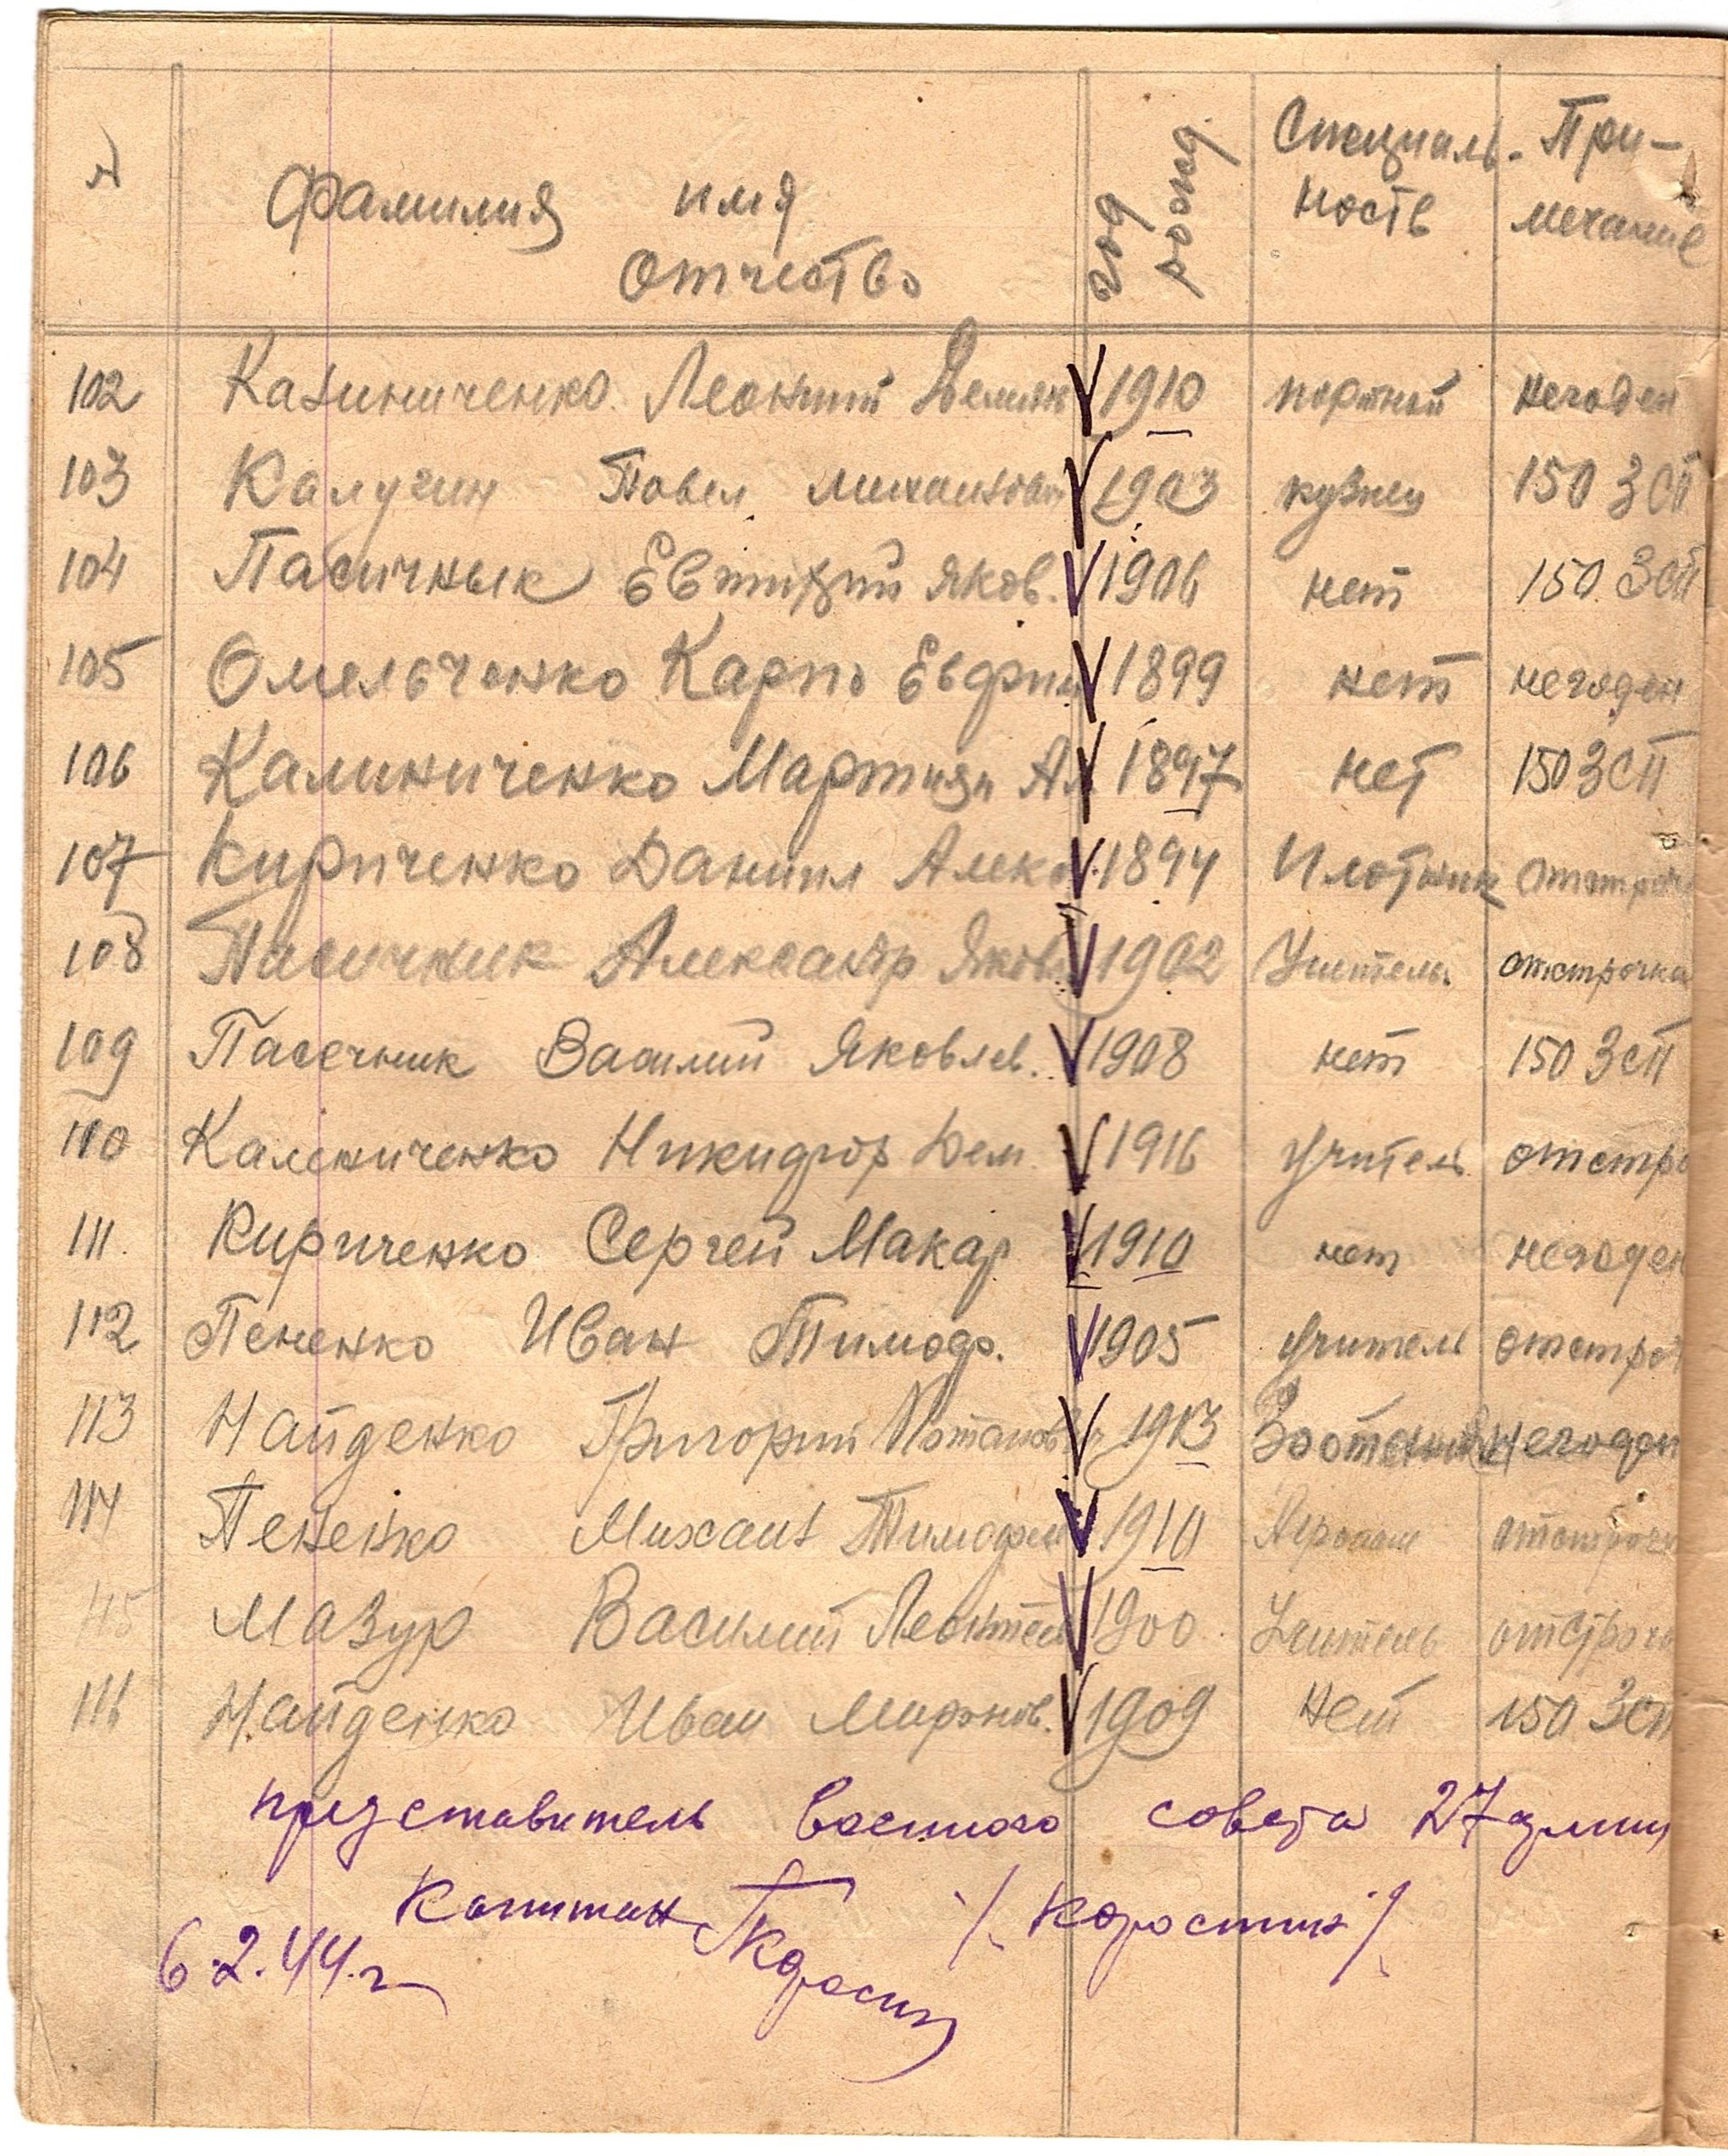 № Фамилия имя отчество год рожд. Специаль-ность При-мечание
102 Калиниченко Леонтий Демян 1910 портной негоден
103 Калугин Павел Михайлович 1903 кузнец 150 ЗСП
104 Пасичнык Евтихий Яков. 1906 нет 150 ЗСП
105 Омельченко Карпо Евфим 1899 нет негоден
106 Калиниченко Мартиян Ал 1897 нет 150 ЗСП
107 Кириченко Даниил Алекс. 1894 Плотник отстроч
108 Пасичник Александр Яковл 1902 Учитель отстрочка
109 Пасечник Василий Яковлев. 1908 нет 150 ЗСП
110 Калениченко Никифор Дем. 1916 Учитель отстро
111. Кириченко Сергей Макар 1910 нет негоден
112 Пененко Иван Тимоф. 1905 Учитель отстроч
113 Найденко Григорий Потапов 1913 Зоотехник негоден
114 Пененко Михаил Тимофеев 1910 отстрочк
115 Мазур Василий Леонтев 1900 Учитель отстрочк
116 Найденко Иван Миронов. 1909 Нет 150 ЗСП
представитель военного совета 27 армии
Капитан /Коростин/
6.2.44.г